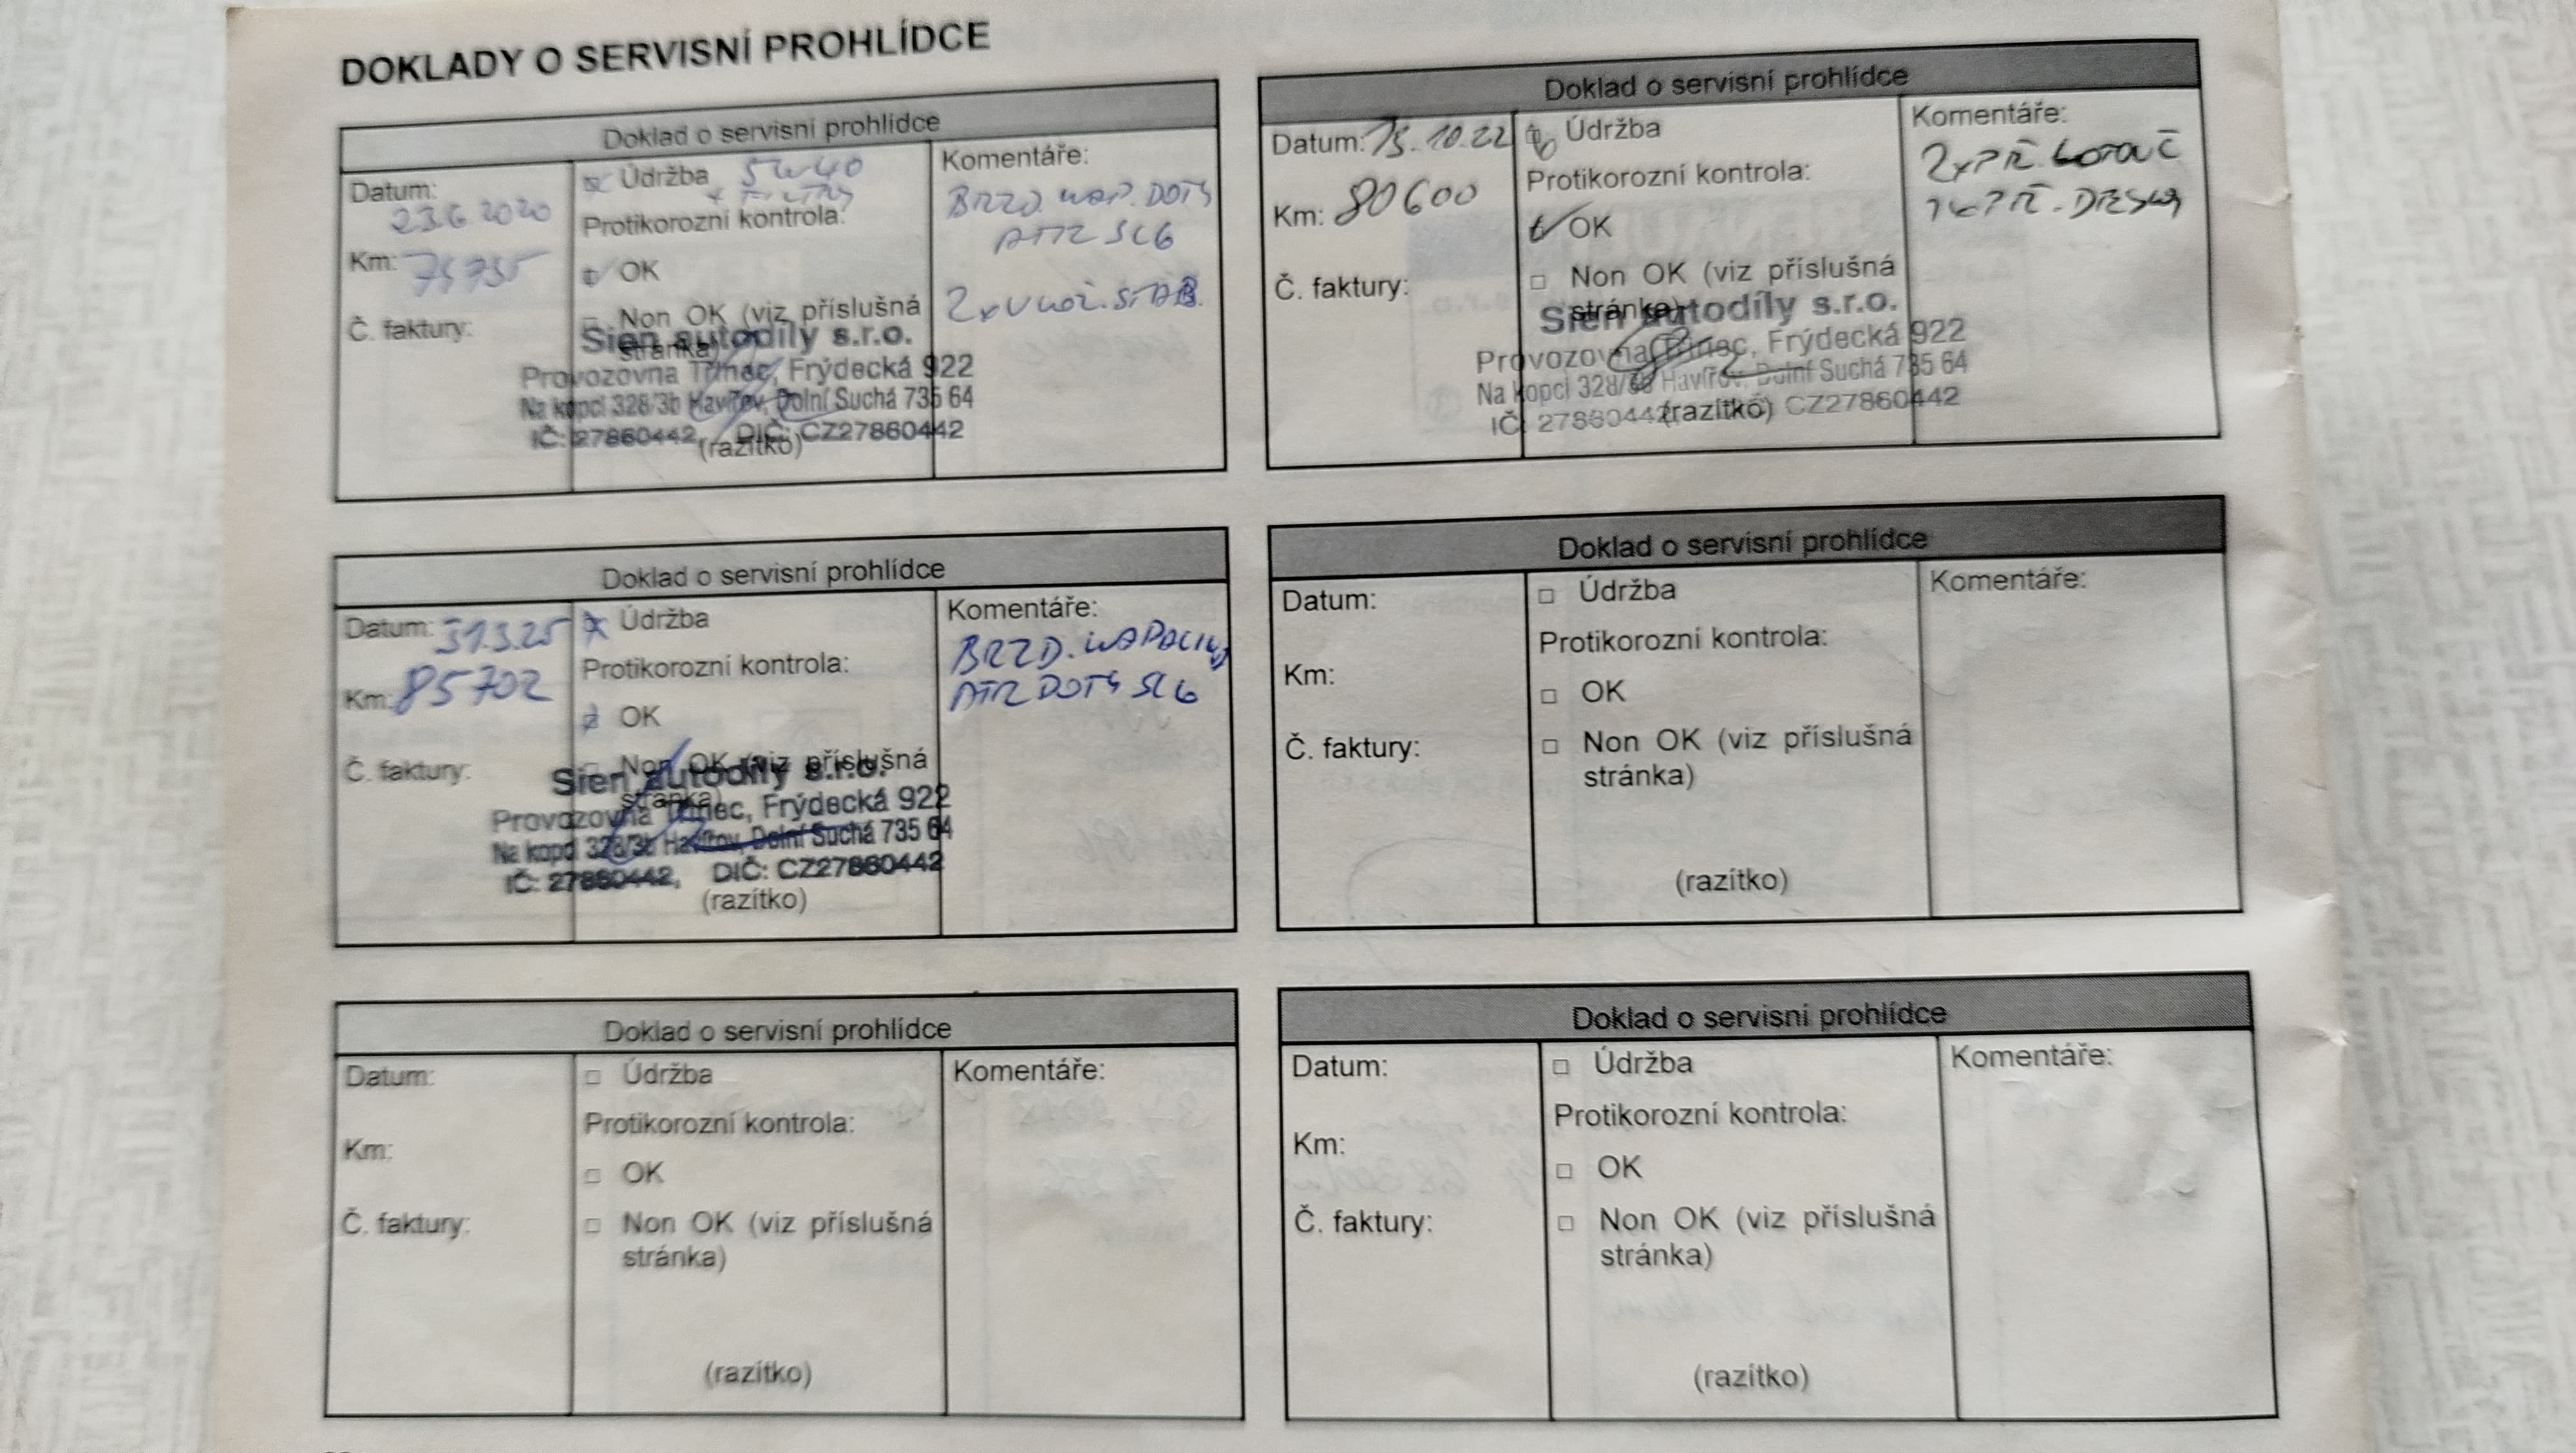 DOKLADY O SERVISNÍ PROHLÍDCE
Doklad o servisní prohlídce
Datum:
23.6 2020
Km:
Č. faktury:
Údržba 5W40
+ FILTRY
Protikorozní kontrola:
OK
Non OK (viz příslušná
stránka)
Sien autodíly s.r.o.
Provozovna Třinec, Frýdecká 922
Na kopci 328/3b Havířov, Dolní Suchá 735 64
IČ: 27860442, DIČ: CZ27860442
(razítko)
Komentáře:
BRZD. KAP. DOT4
ATE SL6
2x STAB.
Doklad o servisní prohlídce
Datum: 10.22
Km: 80600
Č. faktury:
Údržba
Protikorozní kontrola:
OK
Non OK (viz příslušná
stránka)
Sien autodíly s.r.o.
Provozovna Třinec, Frýdecká 922
Na kopci 328/3b Havířov, Dolní Suchá 735 64
IČ: 27860442 CZ27860442
(razítko)
Komentáře:
2xPŘ. KOTOUČ
PŘ. DESKY
Doklad o servisní prohlídce
Datum: 31.3.25
Km: 85702
Č. faktury:
Údržba
Protikorozní kontrola:
OK
Non OK (viz příslušná
stránka)
Sien autodíly s.r.o.
Provozovna Třinec, Frýdecká 922
Na kopci 328/3b Havířov, Dolní Suchá 735 64
IČ: 27860442, DIČ: CZ27860442
(razítko)
Komentáře:
BRZD. KAPALINA
ATE DOT4 SL6
Doklad o servisní prohlídce
Datum:
Km:
Č. faktury:
Údržba
Protikorozní kontrola:
OK
Non OK (viz příslušná
stránka)
(razítko)
Komentáře:
Doklad o servisní prohlídce
Datum:
Km:
Č. faktury:
Údržba
Protikorozní kontrola:
OK
Non OK (viz příslušná
stránka)
(razítko)
Komentáře:
Doklad o servisní prohlídce
Datum:
Km:
Č. faktury:
Údržba
Protikorozní kontrola:
OK
Non OK (viz příslušná
stránka)
(razítko)
Komentáře: